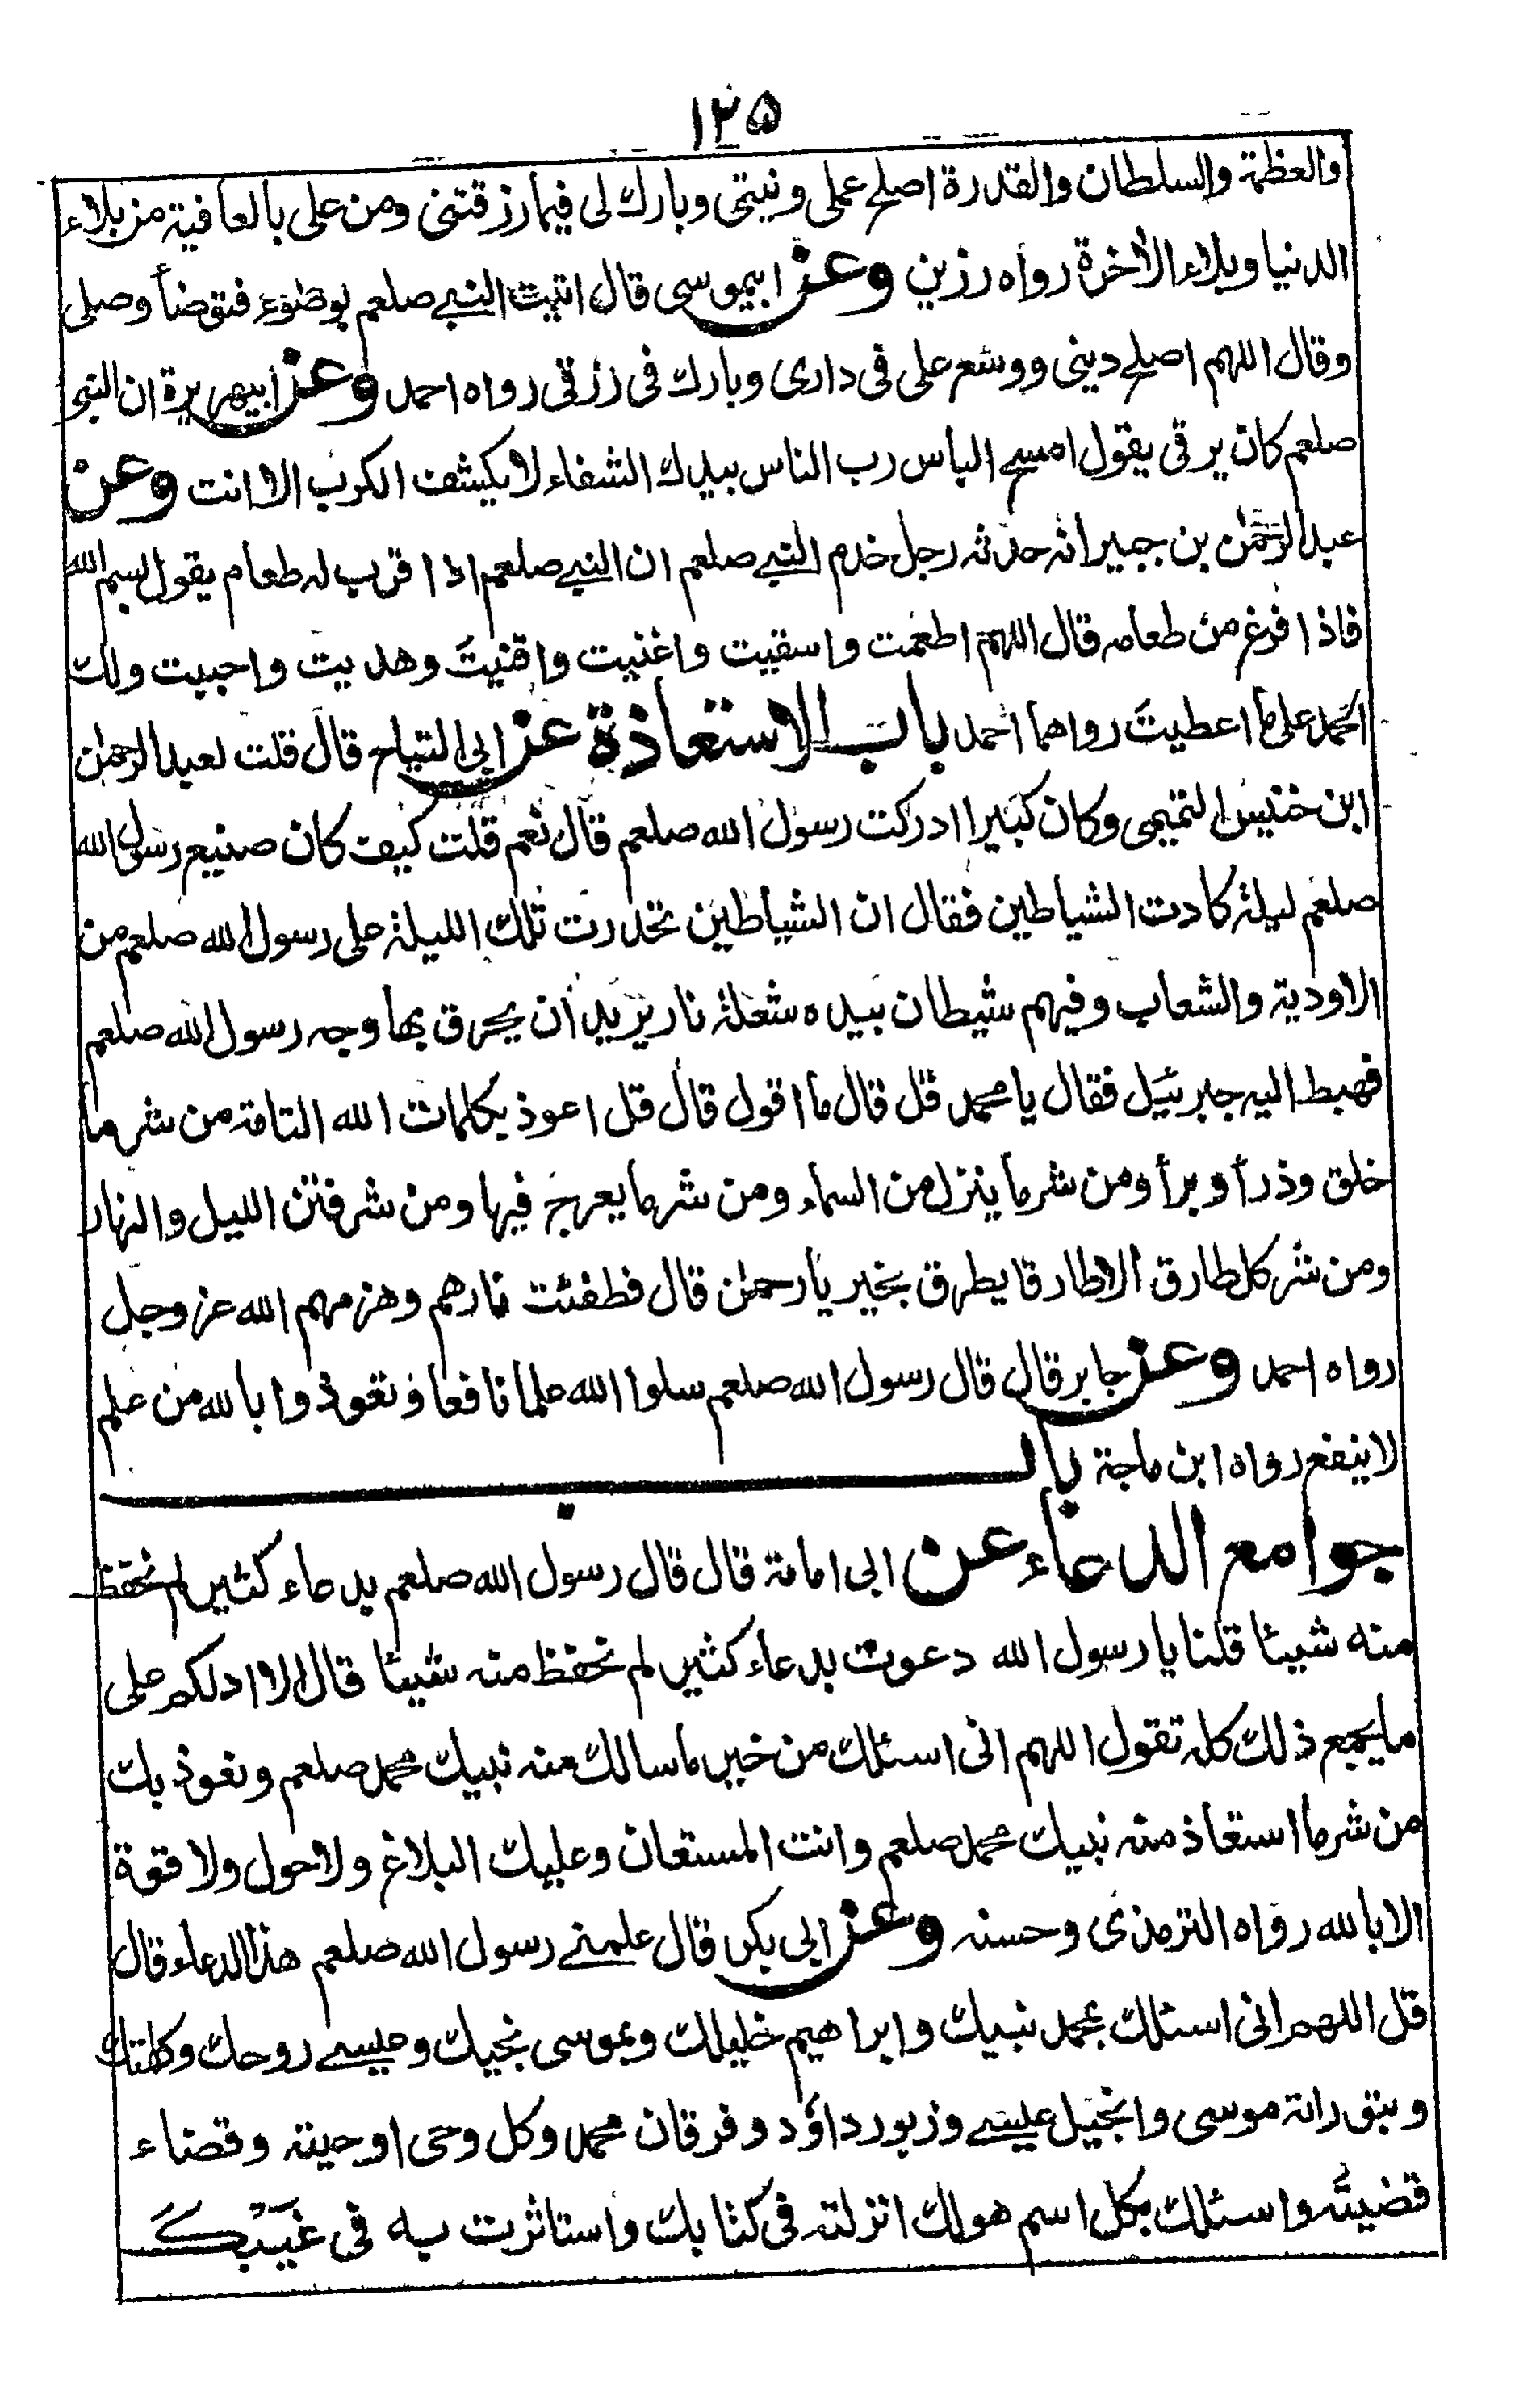 ۱۲۵
والعظمة والسلطان والقدرة اصلح عملى ونيتى وبارك لى فيما رزقتنى ومن على بالعافية من بلاء
الدنيا وبلاء الأخرة رواه رزين وعن ابيموسى قال اتيت النبى صلعم بوضوء فتوضأ وصلى
وقال اللهم اصلح دينى ووسع على فى دارى وبارك فى رزقى رواه احمد وعن ابيهريرة ان النبى
صلعم كان يرقى يقول امسح الباس رب الناس بيدك الشفاء لا يكشف الكرب الا انت وعن
عبد الرحمٰن بن جبير انه حدثه رجل خدم النبى صلعم ان النبى صلعم اذا قرب له طعام يقول بسم الله
فاذا فرغ من طعامه قال اللهم اطعمت واسقيت واغنيت واقنيت وهديت واحييت ولك
الحمد على ما اعطيت رواهما احمد باب الاستعاذة عن ابى التياح قال قلت لعبد الرحمٰن
ابن خنيس التميمى وكان كبيرا ادركت رسول الله صلعم قال نعم قلت كيف كان صنيع رسول الله
صلعم ليلة كادت الشياطين فقال ان الشياطين تحدرت تلك الليلة على رسول الله صلعم من
الاودية والشعاب وفيهم شيطان بيده شعلة نار يريد ان يحرق بها وجه رسول الله صلعم
فهبط اليه جبرئيل فقال يا محمد قل قال ما اقول قال قل اعوذ بكلمات الله التامة من شر ما
خلق وذرأ وبرأ ومن شر ما ينزل من السماء ومن شر ما يعرج فيها ومن شر فتن الليل والنهار
ومن شر كل طارق الا طارقا يطرق بخير يا رحمٰن قال فطفئت نارهم وهزمهم الله عز وجل
رواه احمد وعن جابر قال قال رسول الله صلعم سلوا الله علما نافعا وتعوذوا بالله من علم
لا ينفع رواه ابن ماجة باب
جوامع الدعاء عن ابى امامة قال قال رسول الله صلعم بدعاء كثير لم نحفظ
منه شيئا قلنا يا رسول الله دعوت بدعاء كثير لم نحفظ منه شيئا قال الا ادلكم على
ما يجمع ذلك كله تقول اللهم انى اسئلك من خير ما سالك منه نبيك محمد صلعم ونعوذ بك
من شر ما استعاذ منه نبيك محمد صلعم وانت المستعان وعليك البلاغ ولا حول ولا قوة
الا بالله رواه الترمذى وحسنه وعن ابى بكر قال علمنى رسول الله صلعم هذا الدعاء قال
قل اللهم انى اسئلك بمحمد نبيك وابراهيم خليلك وبموسى نجيك وعيسى روحك وكلمتك
وبتوراة موسى وانجيل عيسى وزبور داؤد وفرقان محمد وكل وحى اوحيته وقضاء
قضيته واسئلك بكل اسم هولك انزلته فى كتابك واستاثرت به فى غيبك